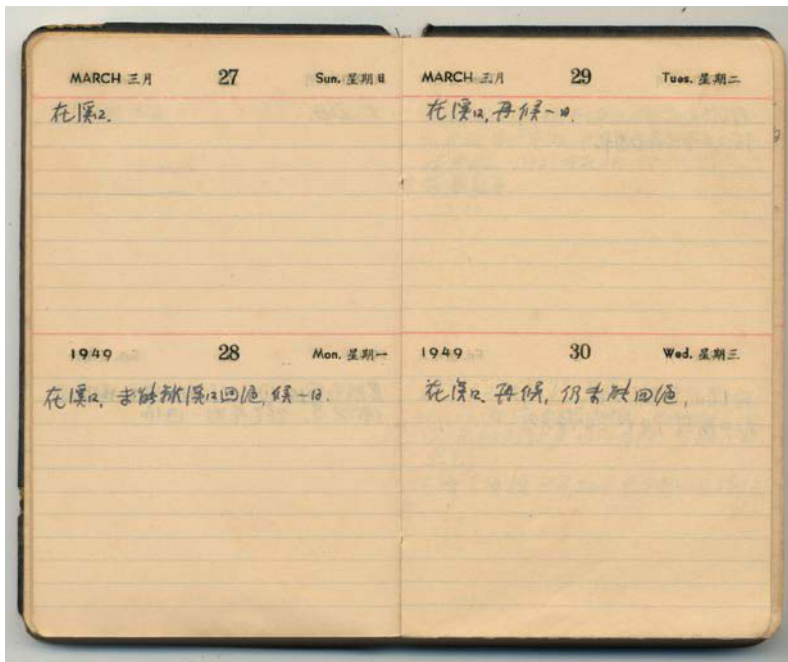 MARCH 三月 27 Sun. 星期日
在溪口.
1949 28 Mon. 星期一
在溪口, 未能離溪口回滬, 候一日.
MARCH 三月 29 Tues. 星期二
在溪口, 再候一日.
1949 30 Wed. 星期三
在溪口, 再候, 仍未能回滬.